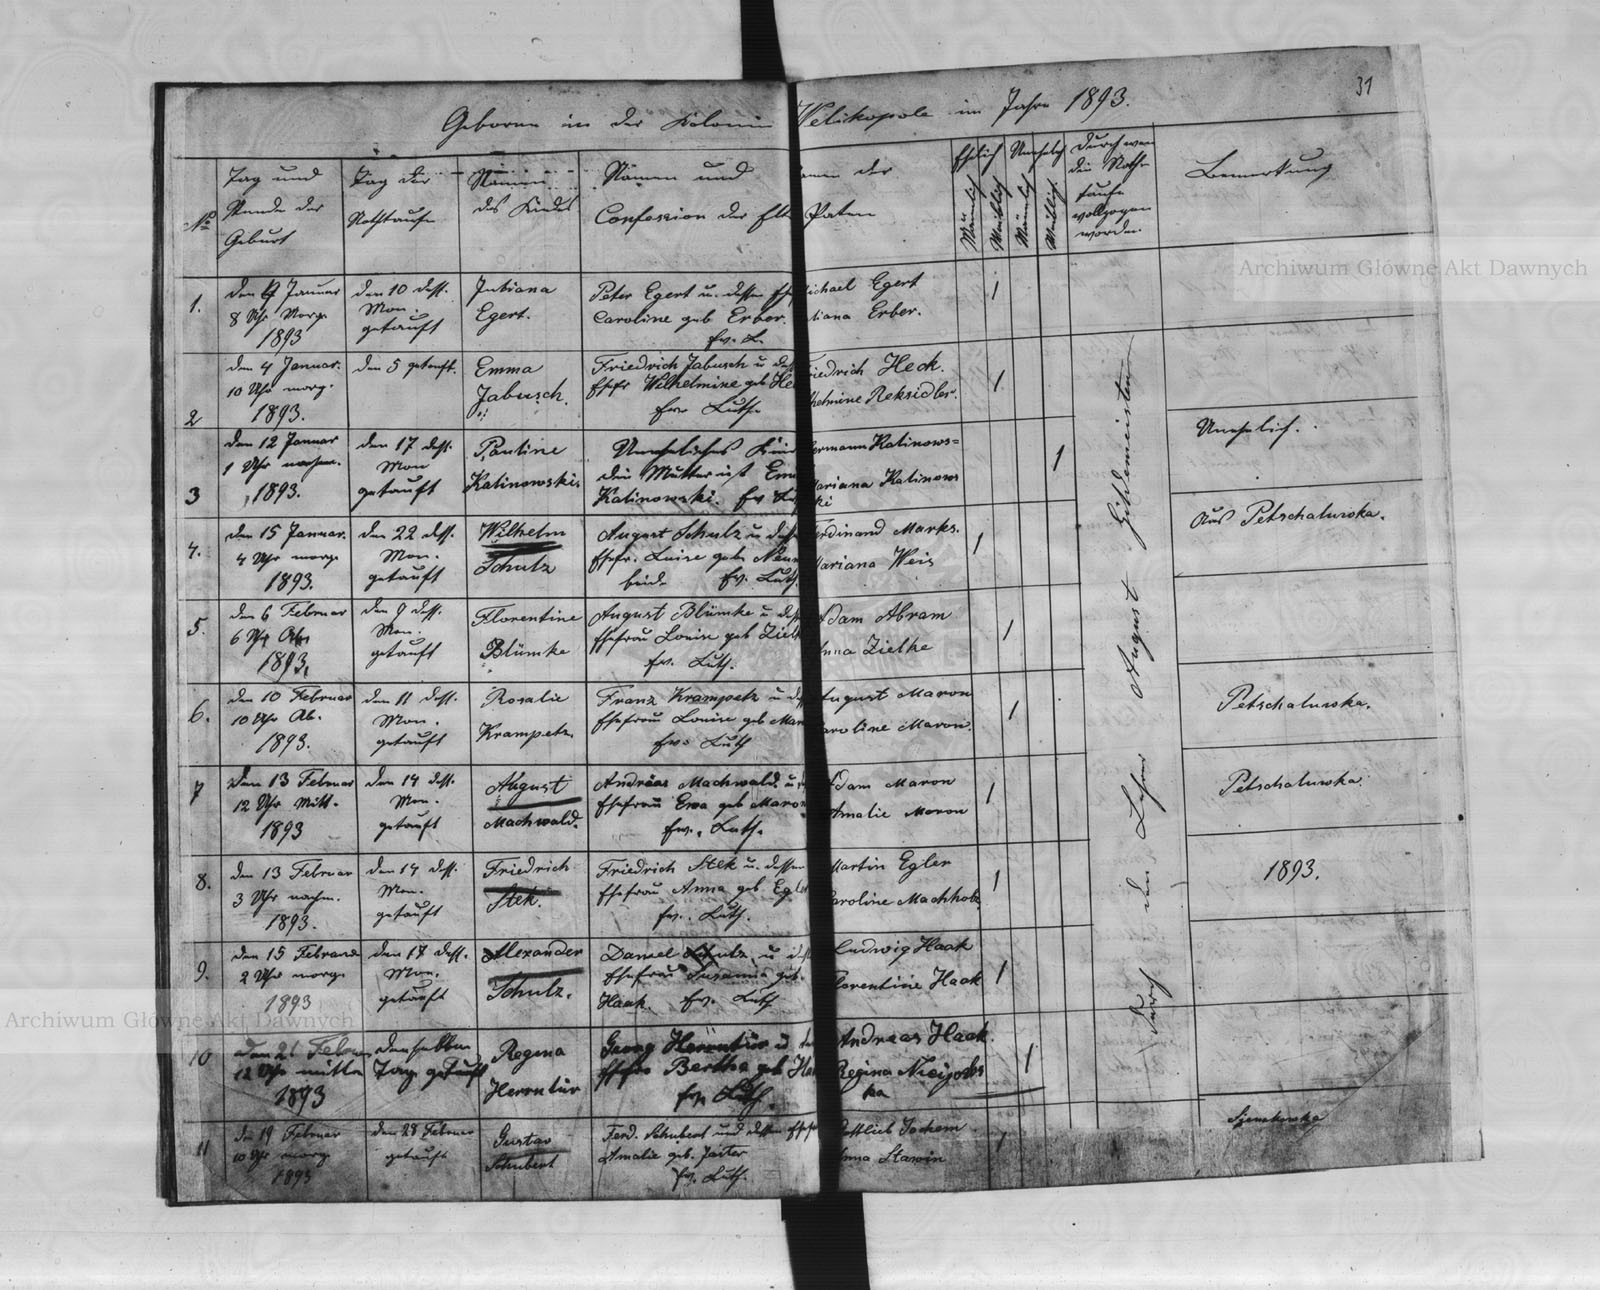 31
Geboren in der Kolonie Welikopole im Jahre 1893.
№
Tag und
Stunde der
Geburt
Tag der
Nothtaufe
Namen
des Kindes
Namen und
Confession der Elt
der
Paten
Ehelich
Unehelich
Männlich
Weiblich
Männlich
Weiblich
Durch wen
die Noth-
taufe
vollzogen
worden.
Bemerkung
1.
den 9 Januar
8 Uhr Morg.
1893
den 10 dess.
Mon.
getauft
Juliana
Egert.
Peter Egert u. dessen Ehe
Caroline geb Erber.
ev. L.
ichael Egert
liana Erber.
1
2
den 4 Januar.
10 Uhr morg.
1893.
den 5 getauft.
Emma
Jabusch.
Friedrich Jabusch u dess
Ehefr Wilhelmine geb He
ev. Luth.
riedrich Heck.
helmine Reksidler.
1
3
den 12 Januar
1 Uhr nachm.
1893.
den 17 dess.
Mon
getauft
Pauline
Kalinowski.
Uneheliches Kind
die Mutter ist Em
Kalinowski. ev Lu
ermann Kalinows=
ariana Kalinows
ki
1
Unehelich.
4.
den 15 Januar.
4 Uhr morg.
1893.
den 22 dess.
Mon.
getauft
Wilhelm
Schulz
August Schulz u desse
Ehefr. Luise geb. Neum
beide ev. Luth.
erdinand Marks.
ariana Weis
1
Aus Petschalurska.
5.
den 6 Februar
6 Uhr Ab.
1893.
den 9 dess.
Mon.
getauft
Florentine
Blümke
August Blümke u dess
Ehefrau Louise geb Zielk
ev. Luth.
Adam Abram
nna Zielke
1
6.
den 10 Februar
10 Uhr Ab.
1893.
den 11 dess.
Mon.
getauft
Rosalie
Krampetz.
Franz Krampetz u des
Ehefrau Louise geb Mar
ev. Luth
August Maron
aroline Maron.
1
Petschalurska.
7
den 13 Februar
12 Uhr Mitt.
1893
den 14 dess.
Mon.
getauft
August
Machwald.
Andreas Machwald. u
Ehefrau Ewa geb Maro
ev. Luth.
Adam Maron
Amalie Maron
1
Petschalurska.
8.
den 13 Februar
3 Uhr nachm.
1893.
den 14 dess.
Mon.
getauft
Friedrich
Stek.
Friedrich Stek u. dessen
Ehefrau Anna geb Egle
ev. Luth.
Martin Egler
aroline Machholz
1
1893.
9.
den 15 Februar
2 Uhr morg.
1893
den 17 dess.
Mon.
getauft
Alexander
Schulz.
Daniel Schulz u dess
Ehefrau Susanna geb.
Haak. ev. Luth
Ludwig Haak
lorentine Haak
1
10
den 21 Februar
12 Uhr mitta
1893
denselben
Tag getauft
Regina
Herrntür
Georg Herrntür u de
Ehefr Bertha geb Ha
ev. Luth.
Andreas Haak.
Regina
ka
1
11
den 19 Februar
10 Uhr morg.
1893
den 28 Februar
getauft
Gustav
Schubert
Ferd. Schubert und dessen Ehefr
Amalie geb.
ev. Luth.
ottlieb Jochem.
nna Stawin
1
durch den Lehrer August Gildemeister
Archiwum Główne Akt Dawnych
Archiwum Główne Akt Dawnych